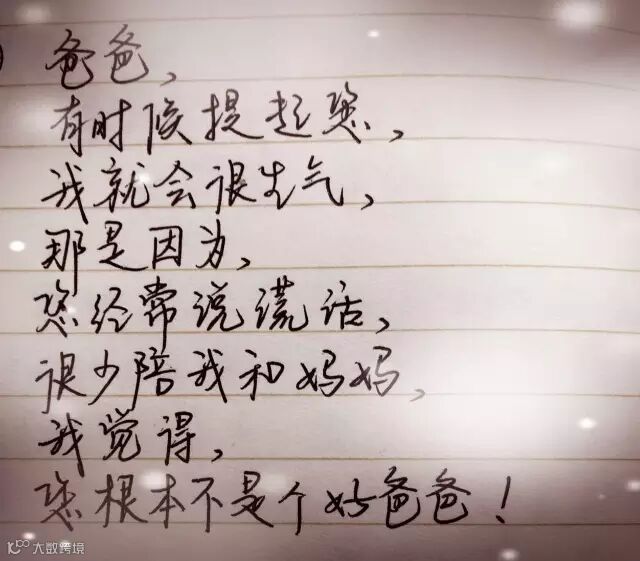 爸爸，
有时候提起您，
我就会很生气，
那是因为，
您经常说谎话，
很少陪我和妈妈，
我觉得，
您根本不是个好爸爸！
大数跨境